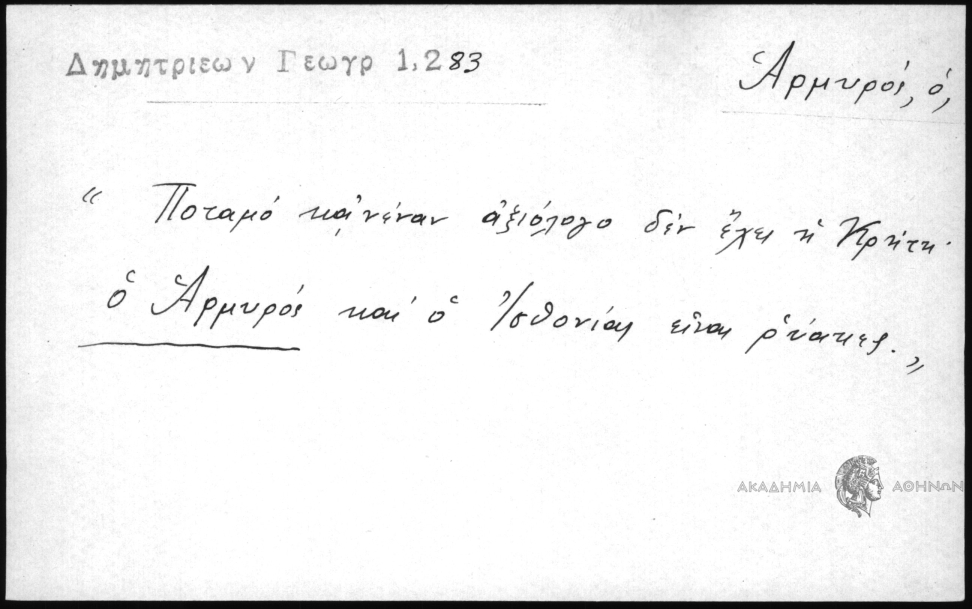 Δημητριεων Γεωγρ 1,283
Ἁρμυρός, ὁ,
“ Ποταμό κᾀνέναν ἀξιόλογο δέν ἔχει ἡ Κρήτη·
ὁ Ἁρμυρός καί ὁ Ἰσθονίας εἶναι ῥύακες. „
ΑΚΑΔΗΜΙΑ ΑΘΗΝΩΝ